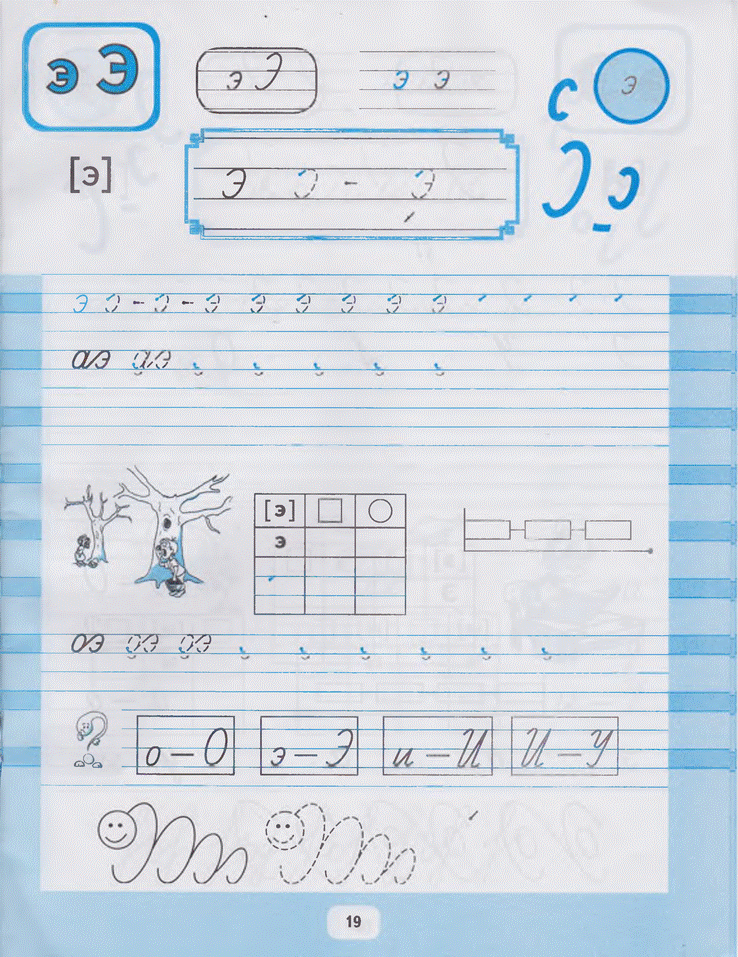 э Э э Э э э э
[э] э э - э
с
С э
э э - э - э э э э э э
аэ аэ
[э]
э
оэ оэ оэ
о – О э – Э и – И И – У
19